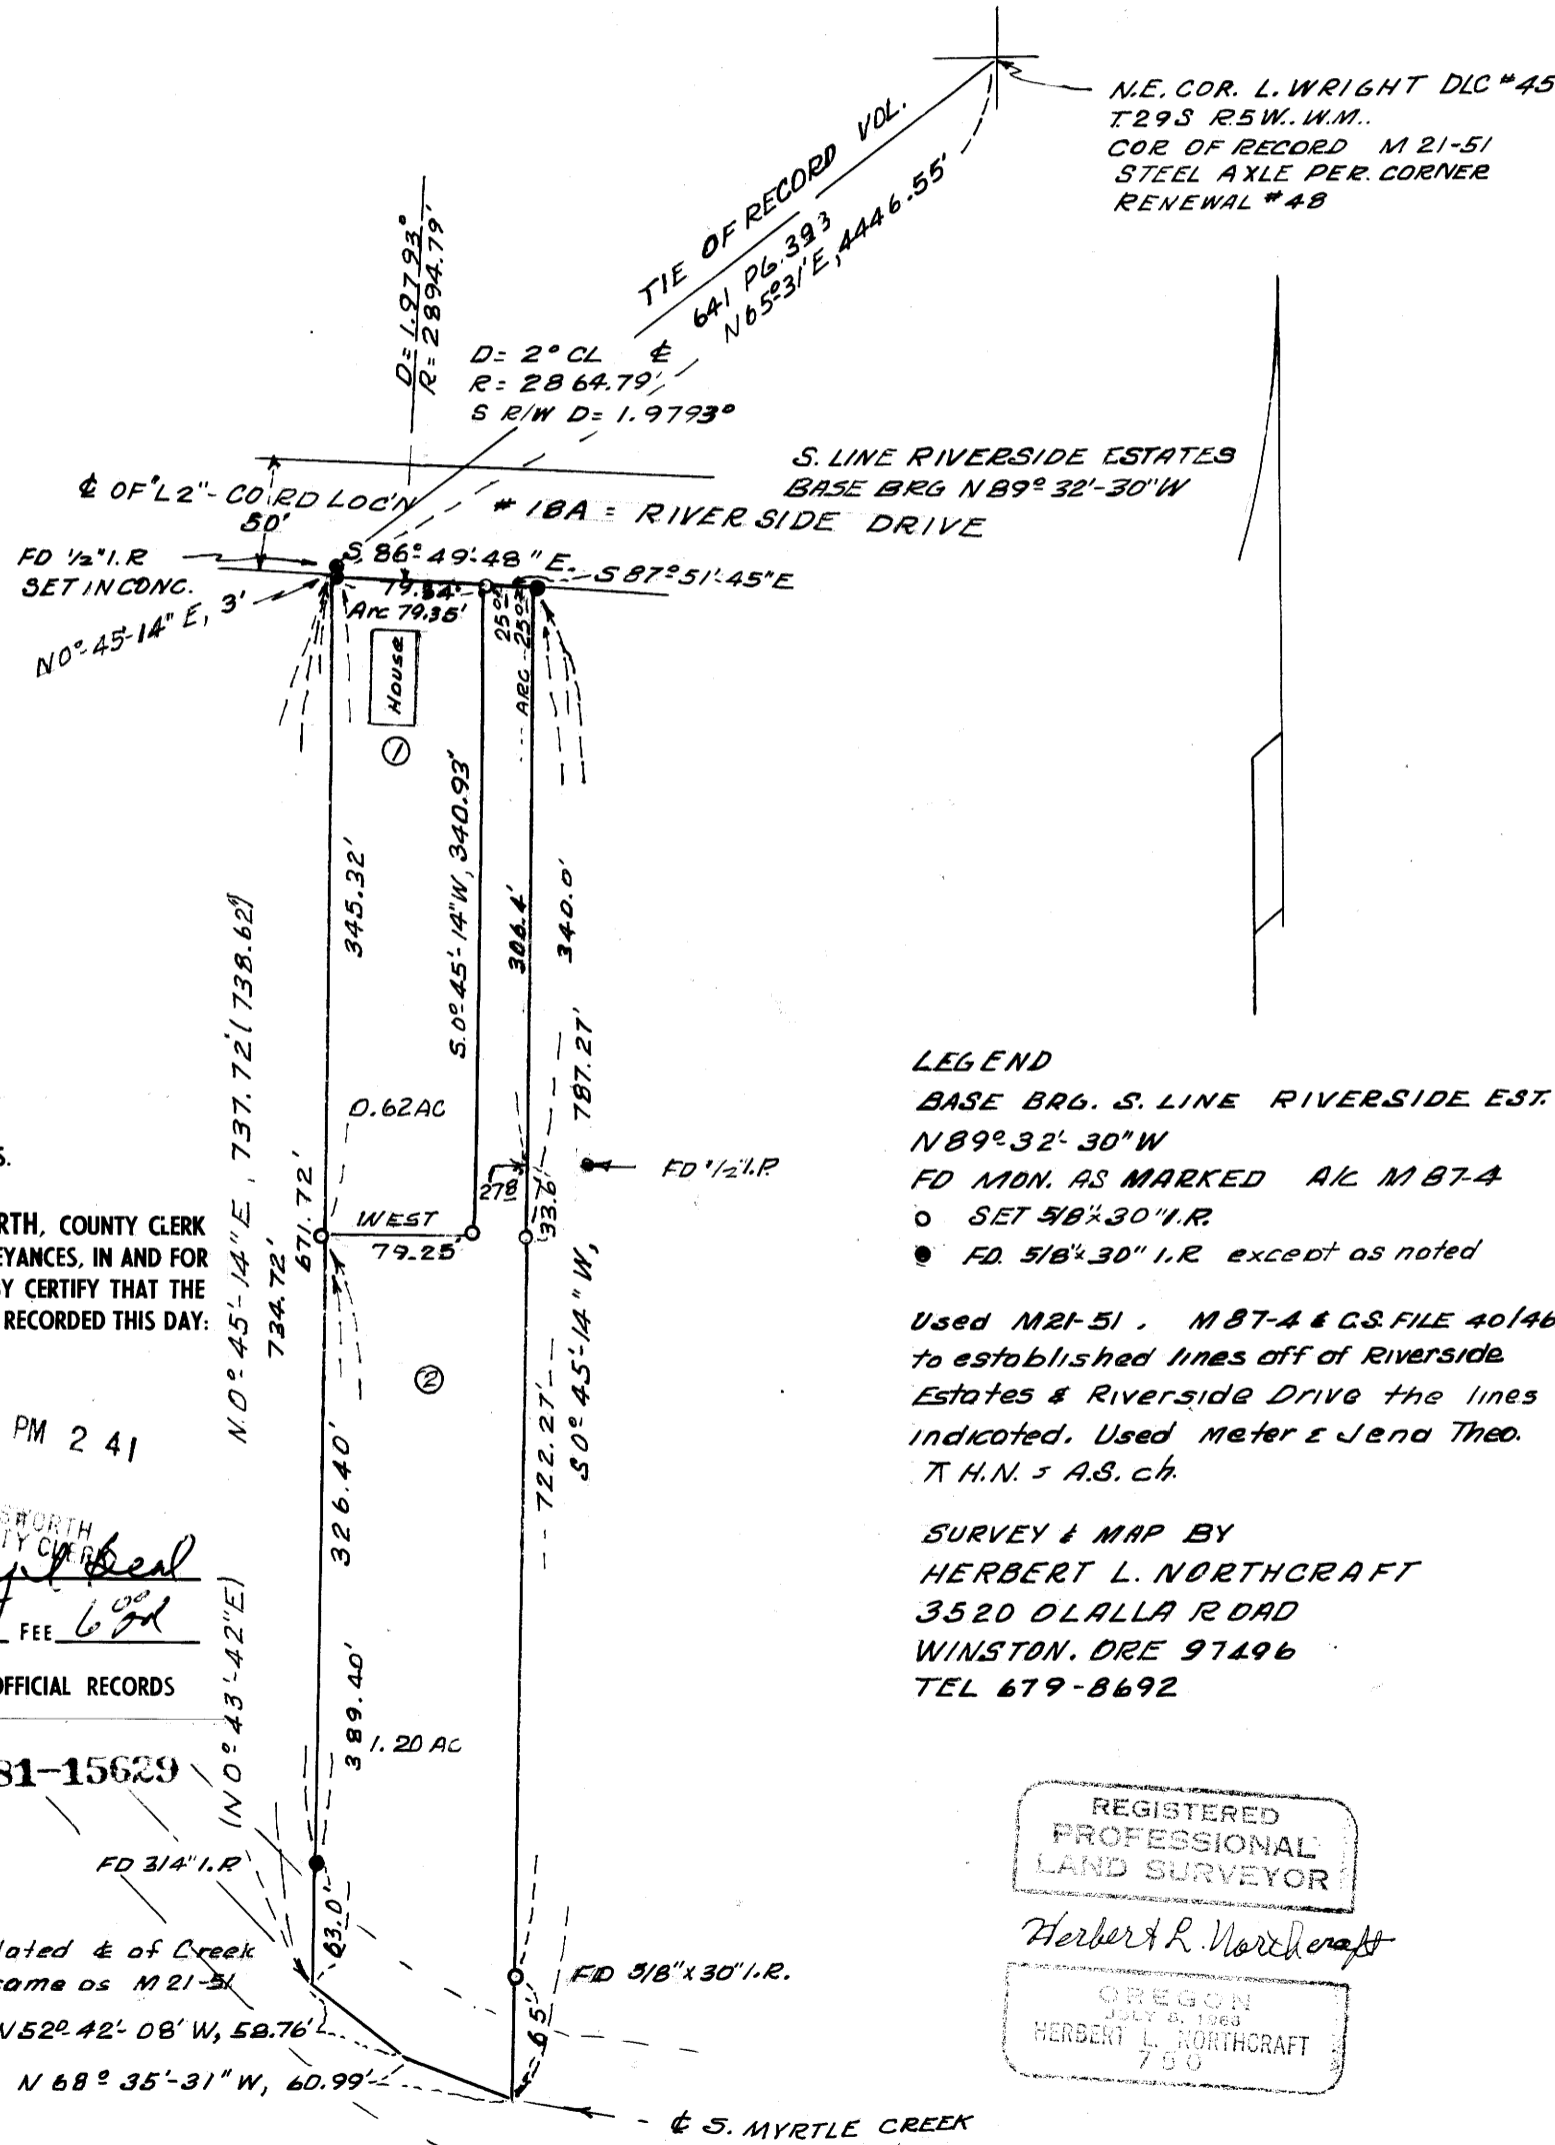 N.E. COR. L. WRIGHT DLC #45
T29S R5W.. W.M..
COR OF RECORD M 21-51
STEEL AXLE PER. CORNER
RENEWAL #48
TIE OF RECORD VOL.
641 PG. 393
N65º-31'E, 4446.55'
D=1.9793°
R=2894.79'
D= 2° CL ℄
R= 2864.79'
S R/W D= 1.9793°
S. LINE RIVERSIDE ESTATES
BASE BRG N89º32'-30"W
℄ OF "L2"- CO RD LOC'N #18A = RIVERSIDE DRIVE
50'
FD 1/2" I.R
SET IN CONC.
N0º-45'-14" E, 3'
S 86º-49'-48" E.
S 87º-51'-45"E
Arc 79.35'
House
1
345.32'
S.0º-45'-14"W, 340.93'
306.4'
340.0'
N.0º-45'-14"E, 737.72' (738.62')
787.27'
0.62AC
FD 1/2" I.P.
671.72'
734.72'
WEST
79.25'
33.6'
2
S0º-45'-14"W,
722.27'
326.40'
389.40'
(N0º-43'-42"E)
1.20 AC
FD 3/4" I.P
63.0'
FD 5/8" x 30" I.R.
65'
lated ℄ of Creek
same as M 21-51
N52º-42'-08' W, 58.76'
N 68º 35'-31" W, 60.99'
℄ S. MYRTLE CREEK
S.
RTH, COUNTY CLERK
EYANCES, IN AND FOR
BY CERTIFY THAT THE
RECORDED THIS DAY:
PM 2 41
SWORTH
TY CLERK
FEE 6.00
OFFICIAL RECORDS
81-15629
LEGEND
BASE BRG. S. LINE RIVERSIDE EST.
N89º-32'-30"W
FD MON. AS MARKED A/C M 87-4
SET 5/8"x30" I.R.
FD. 5/8"x30" I.R except as noted
Used M21-51, M87-4 & C.S. FILE 40/46
to established lines off of Riverside
Estates & Riverside Drive the lines
indicated. Used Meter & Jena Theo.
H.N. A.S. ch.
SURVEY & MAP BY
HERBERT L. NORTHCRAFT
3520 OLALLA ROAD
WINSTON. ORE 97496
TEL 679-8692
REGISTERED
PROFESSIONAL
LAND SURVEYOR
Herbert L. Northcraft
OREGON
HERBERT L. NORTHCRAFT